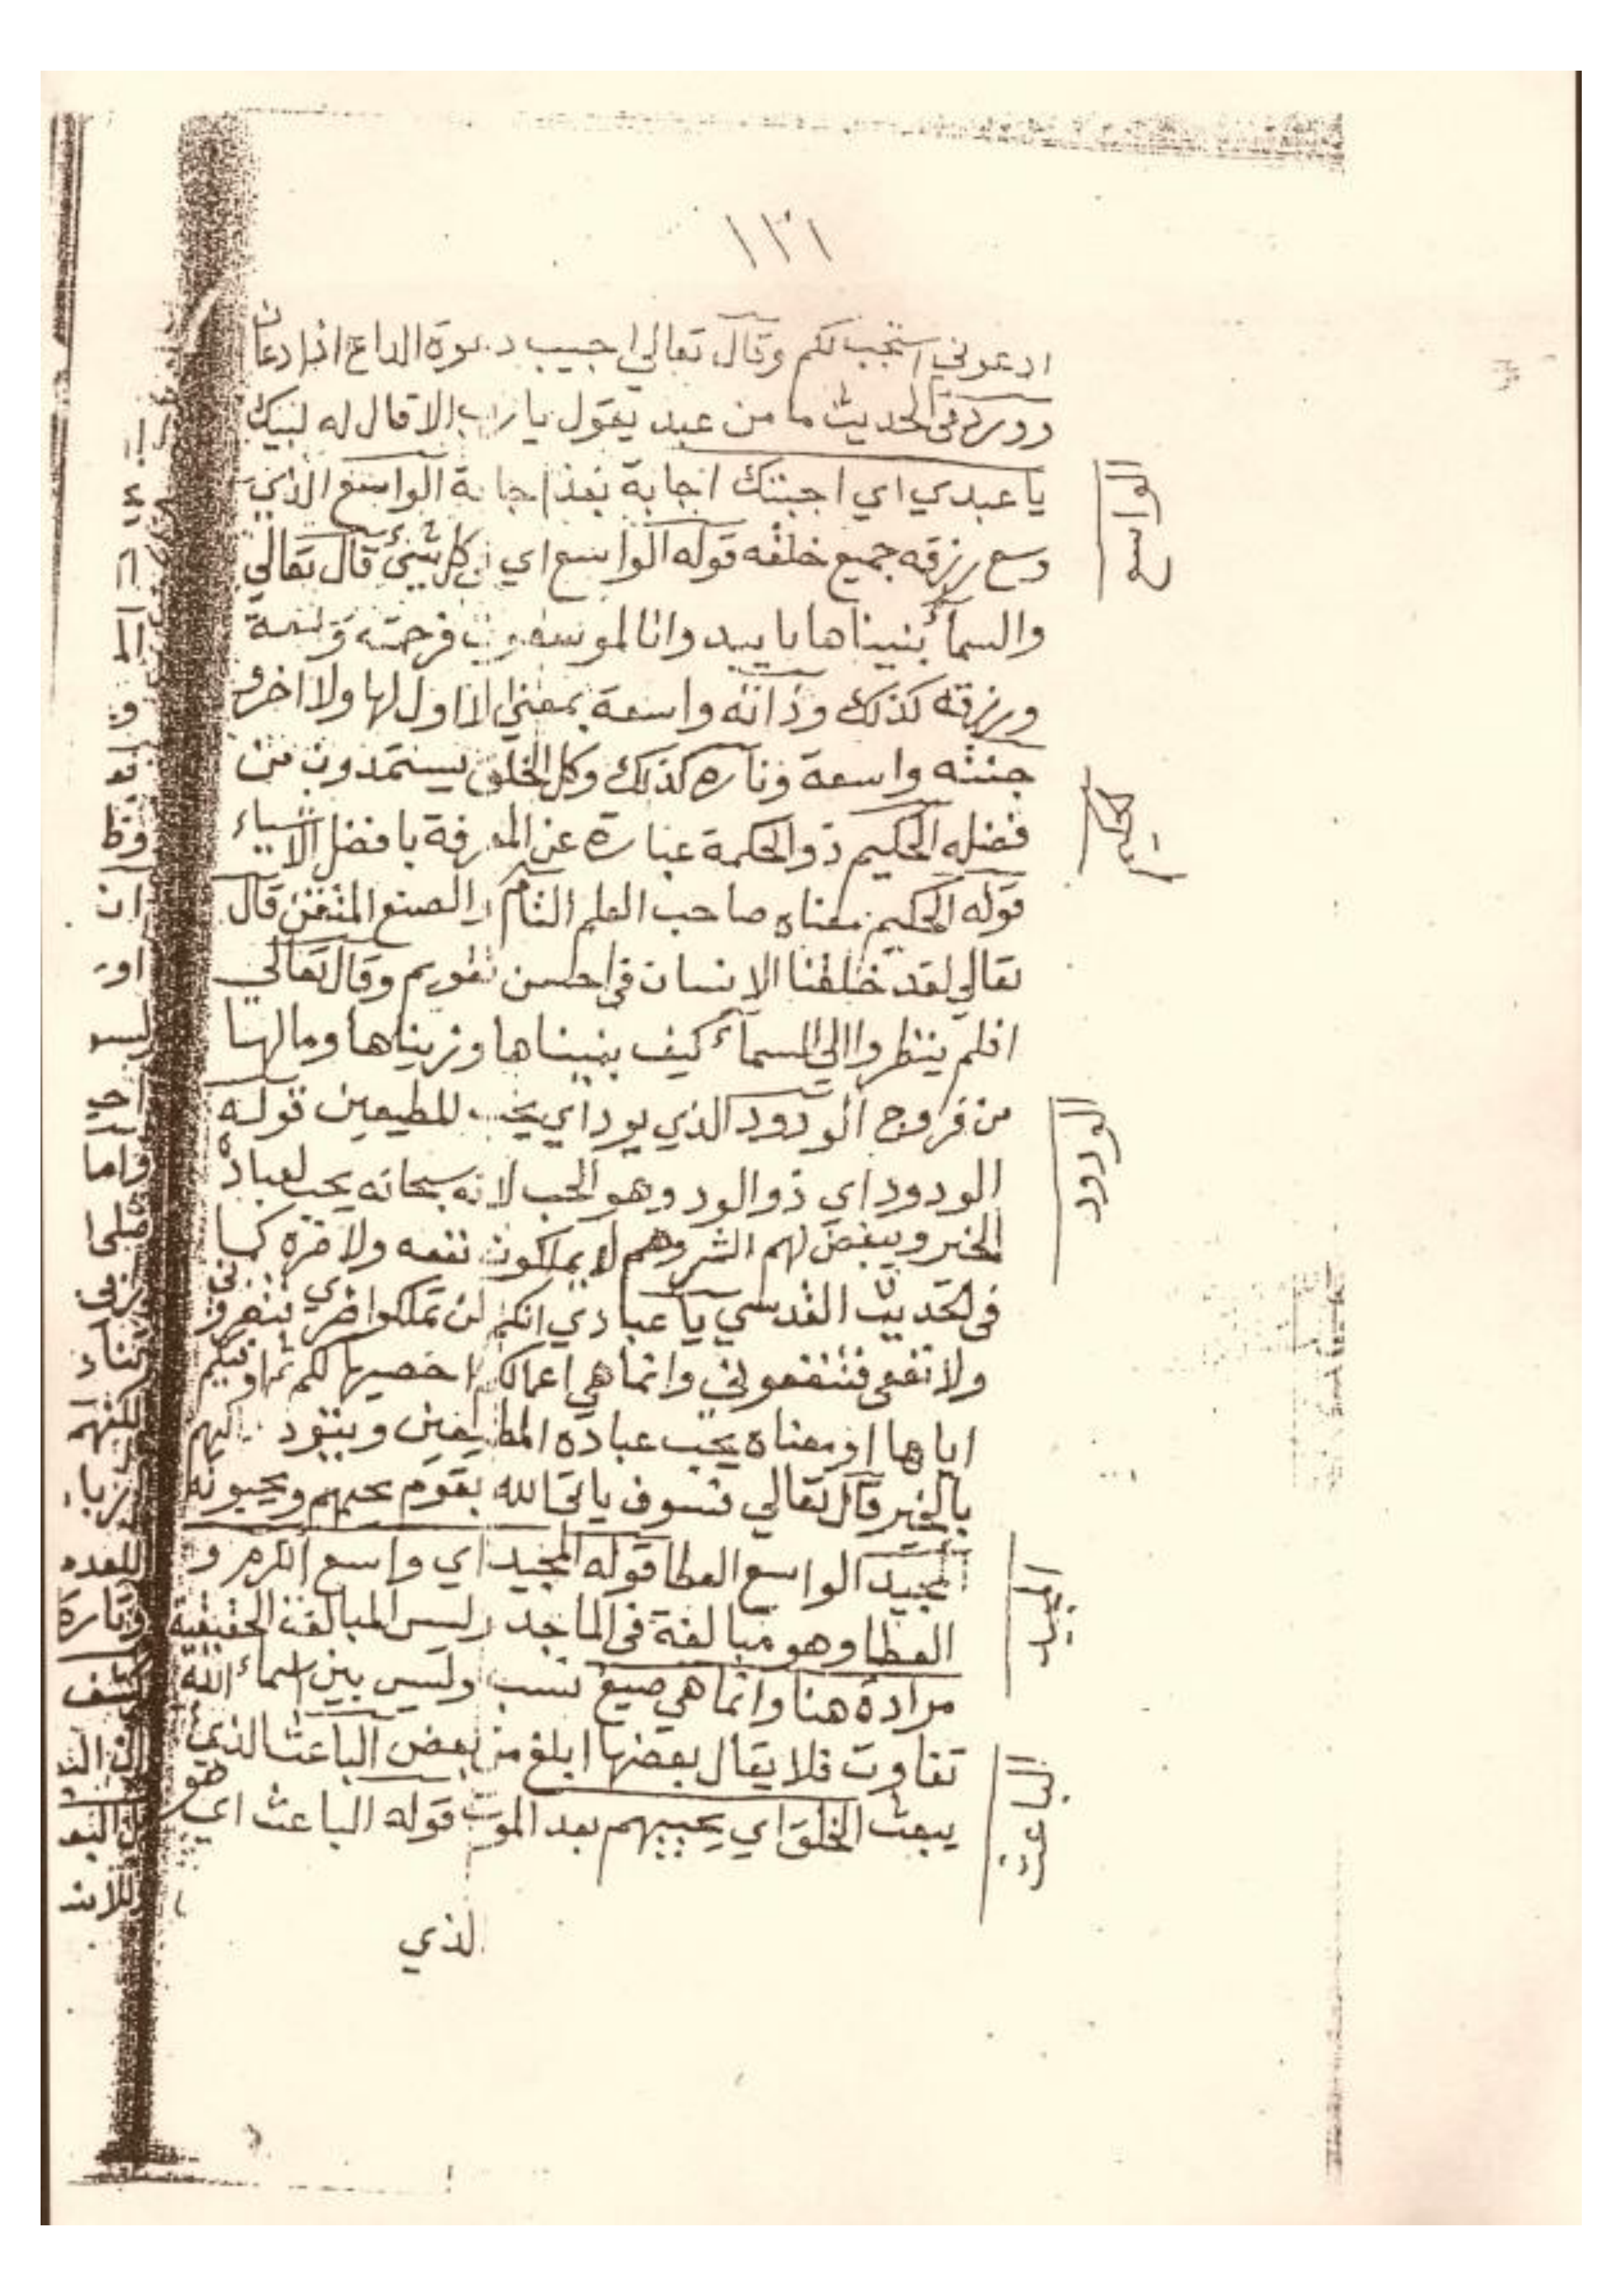 ١٣١
ادعوني استجب لكم وقال تعالي اجيب دعوة الداع اذا دعان
وورد في الحديث ما من عبد يقول يا رب الا قال له لبيك
يا عبدي اي اجبتك اجابة بعد اجابة الواسع الذي
الواسع
وسع رزقه جميع خلقه قوله الواسع اي في كل شيء قال تعالي
والسماء بنيناها بايد وانا لموسعون فرحمته ونعمة
ورزقه كذلك وذاته واسعة بمعني لا اول لها ولا اخر و
جنته واسعة وناره كذلك وكل الخلق يستمدون من
فضله الحكيم ذو الحكمة عبارة عن المعرفة بافضل الاشياء
الحكيم
قوله الحكيم معناه صاحب العلم التام والصنع المتقن قال
تعالي لقد خلقنا الانسان في احسن تقويم وقال تعالي
افلم ينظروا الي السماء كيف بنيناها وزيناها وما لها
من فروج الودود الذي يود اي يحب للمطيعين قوله
الودود
الودود اي ذو الود وهو الحب لانه سبحانه يحب لعباده
الخير ويبغض لهم الشر وهم لا يملكون نفعه ولا ضره كما
في الحديث القدسي يا عبادي انكم لن تملكوا ضري فتضروني
ولا نفعي فتنفعوني وانما هي اعمالكم احصيها لكم ثم اوفيكم
اياها او معناه يحب عباده المطيعين ويتودد اليهم
بالخير قال تعالي فسوف ياتي الله بقوم يحبهم ويحبونه
المجيد الواسع العطا قوله المجيد اي واسع الكرم و
المجيد
العطا وهو مبالغة في الماجد وليس المبالغة الحقيقية
مرادة هنا وانما هي صيغ نسب وليس بين اسماء الله
تفاوت فلا يقال بعضها ابلغ من بعض الباعث الذي
الباعث
يبعث الخلق اي يحييهم بعد الموت قوله الباعث اي هو
الذي